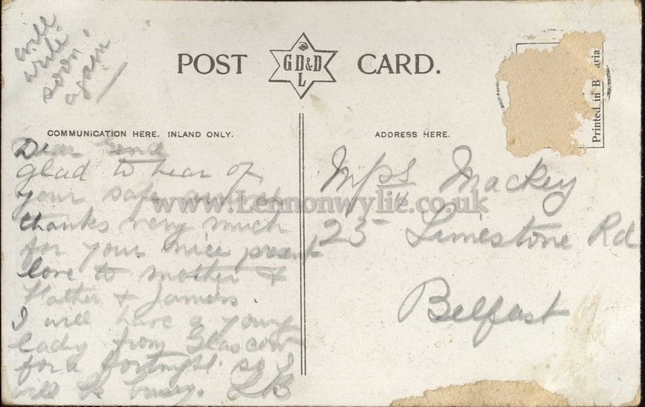 will
write
soon
again
POST CARD.
G D & D
L
Printed in Bavaria
COMMUNICATION HERE. INLAND ONLY.
ADDRESS HERE.
Dear
glad to hear of
your safe
thanks very much
for your nice present
love to mother &
Father &
I will have a young
lady from Glascow
for a fortnight so I
will be busy. LB
Miss Mackey
25 Limestone Rd
Belfast
www.Lennonwylie.co.uk